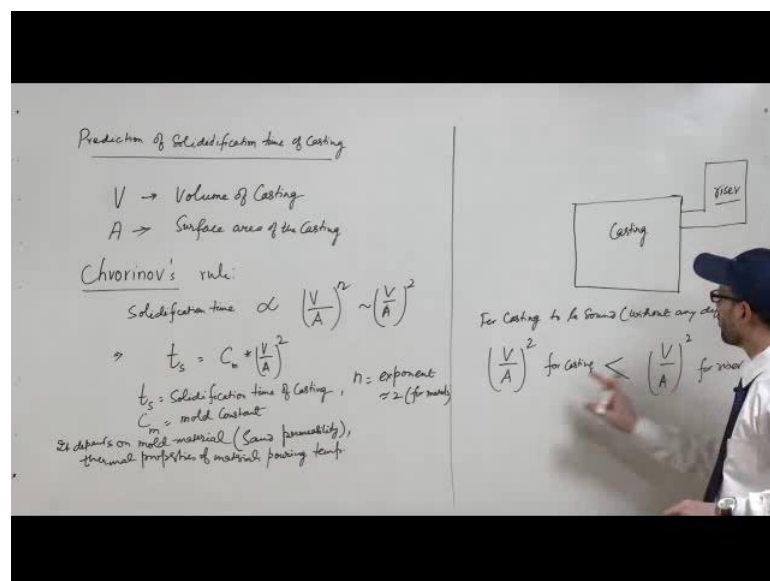 Prediction of Solidedification time of Casting
V → Volume of Casting
A → Surface area of the Casting
Chvorinov's rule:
Solidification time ∝ (V/A)^n ~ (V/A)^2
⇒ t_s = C_m * (V/A)^2
t_s = Solidification time of Casting, n = exponent
≈ 2 (for metals)
C_m = mold Constant
It depends on mold material (Sand permeability),
thermal properties of material pouring temp.
riser
Casting
For Casting to be Sound (without any
(V/A)^2 for casting < (V/A)^2 for riser